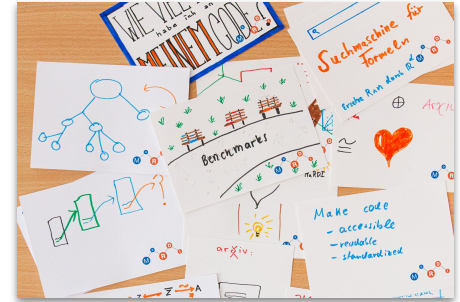 WIE VIEL
habe ich an
MEINEM CODE?
Suchmaschine für
Formeln
Benchmarks
≅
MaRDI
Make code
- accessible
- readable
- standardized
arXiv:
?
Z → A